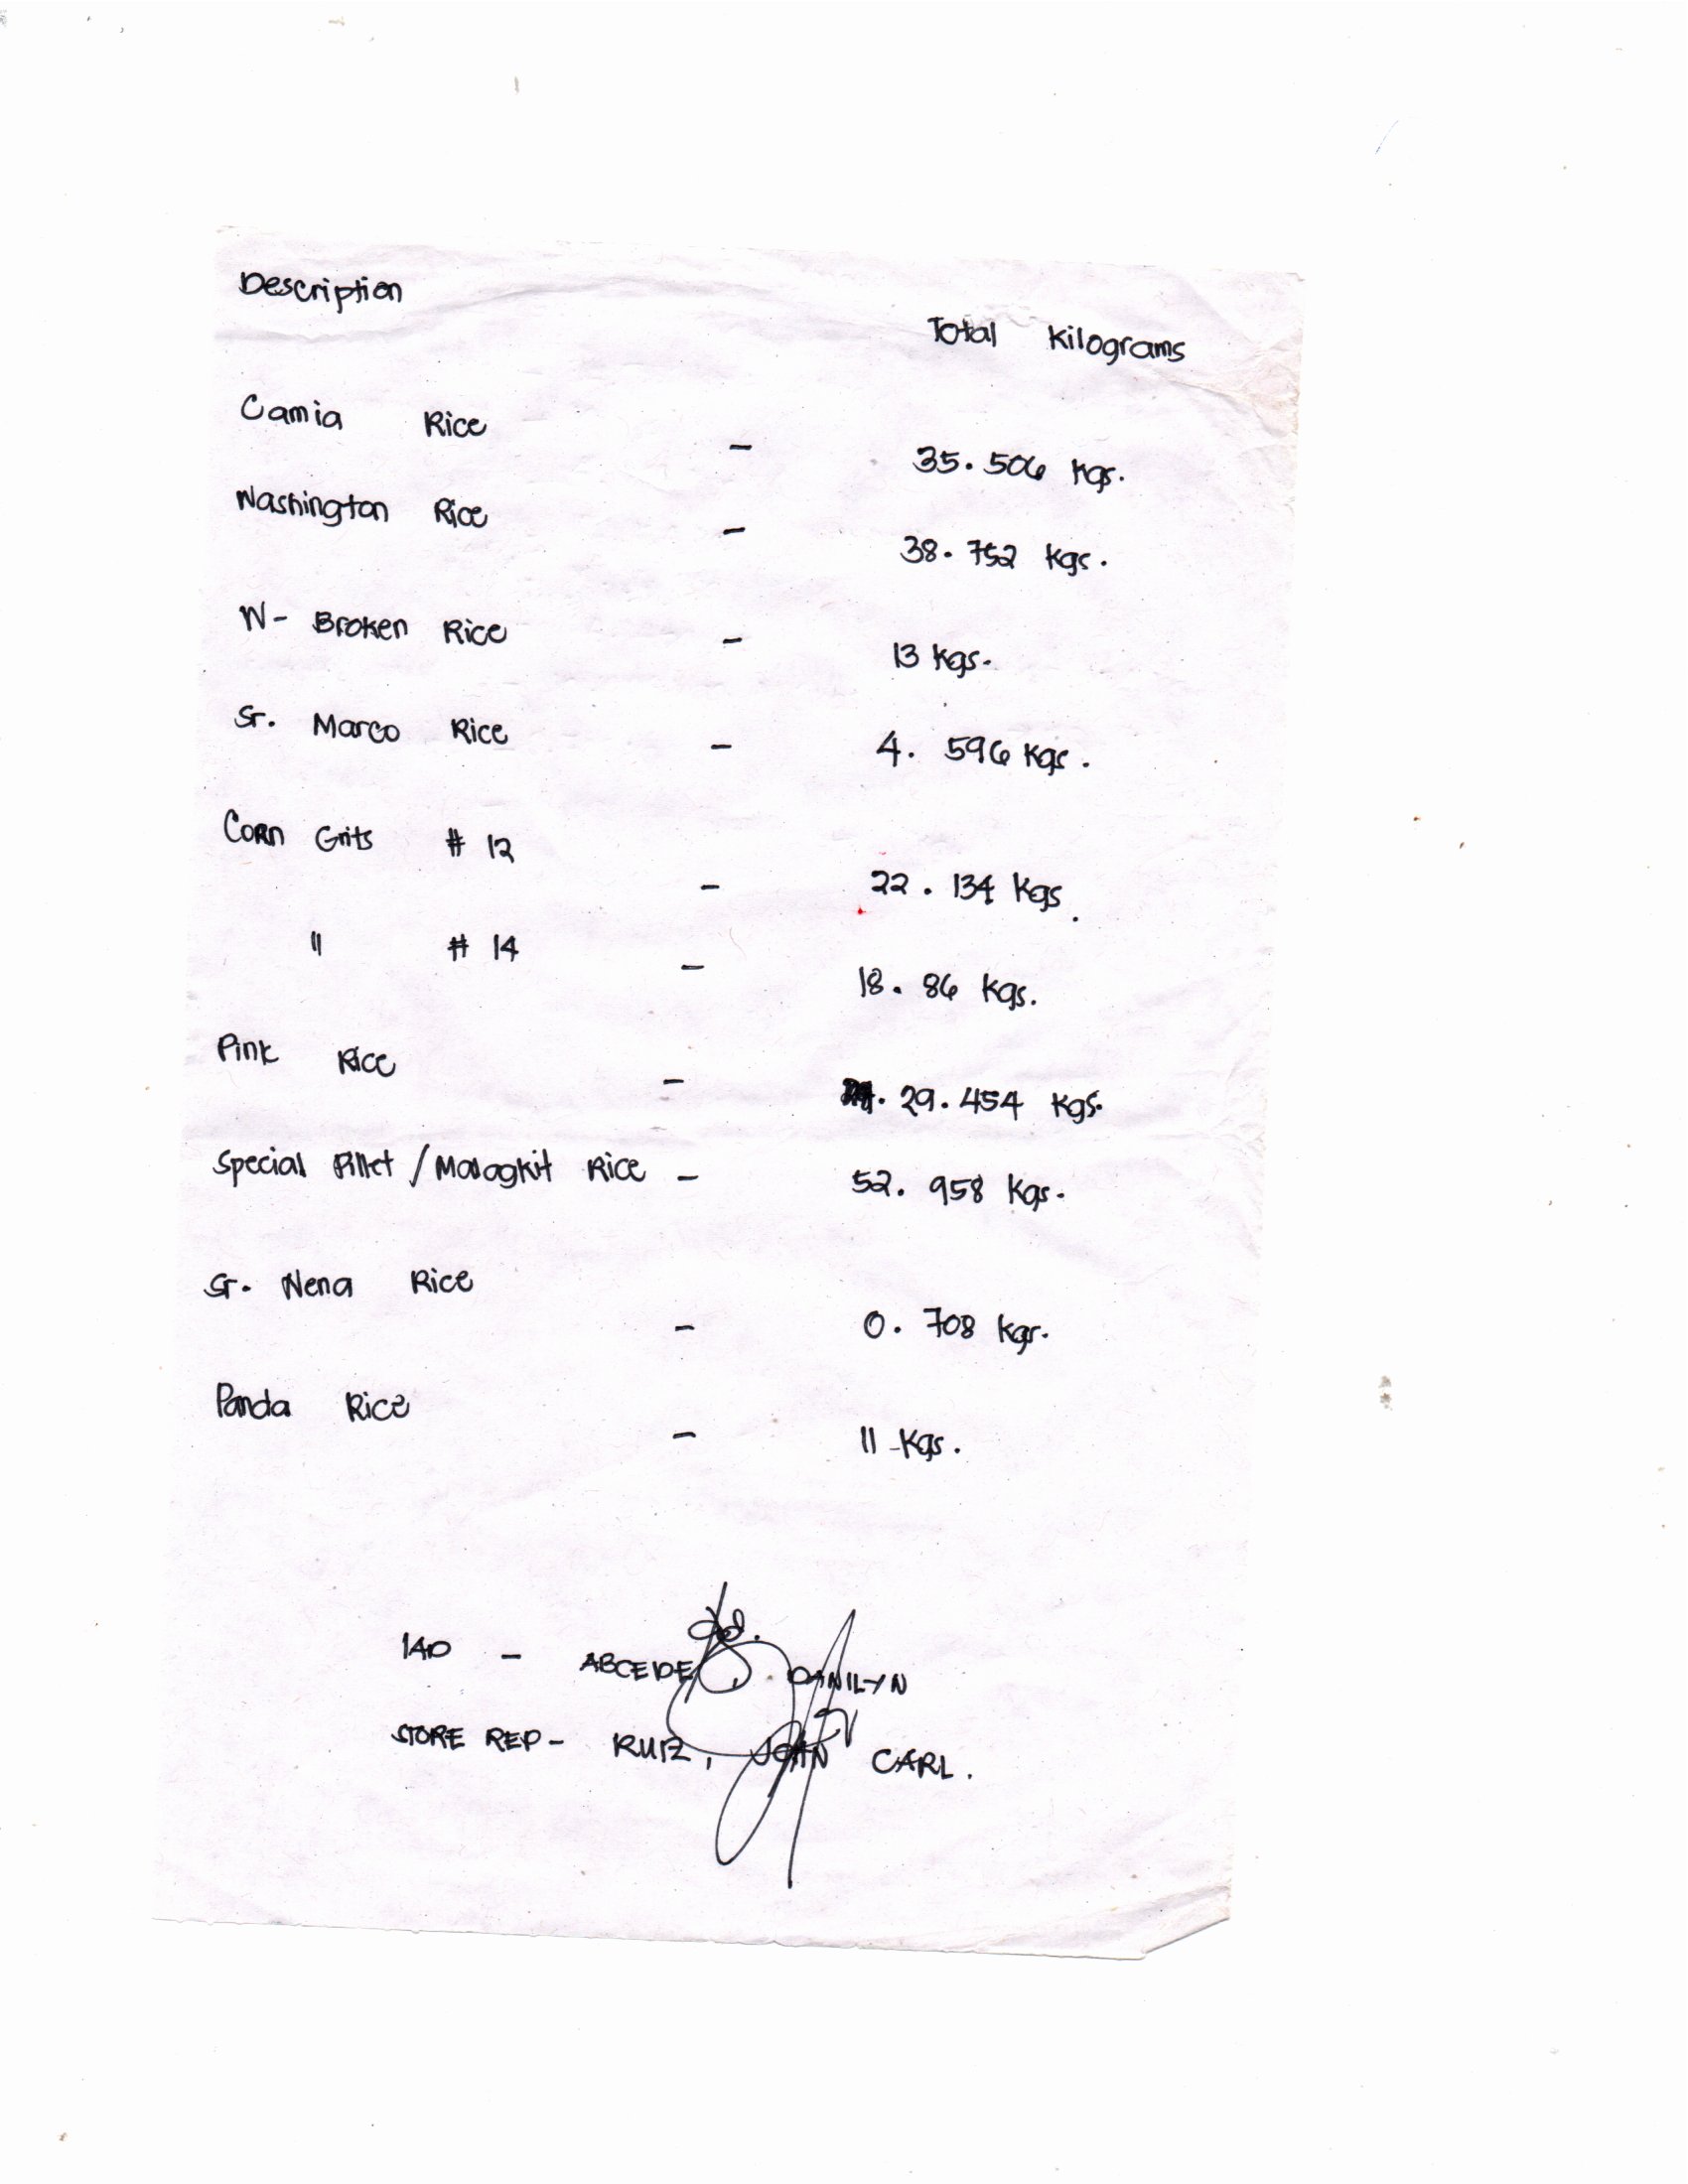 Description
Total Kilograms
Camia Rice - 35.506 Kgs.
Washington Rice - 38.752 Kgs.
W- Broken Rice - 13 Kgs.
Sr. Marco Rice - 4. 596 Kgs.
Corn Grits # 12 - 22. 134 Kgs.
" # 14 - 18. 86 Kgs.
Pink Rice - 29.454 Kgs.
Special / Malagkit Rice - 52. 958 Kgs.
Sr. Nena Rice - 0. 708 Kgs.
Panda Rice - 11 Kgs.
IAD - ABCEDE DANILYN
STORE REP- RUIZ, JOHN CARL.